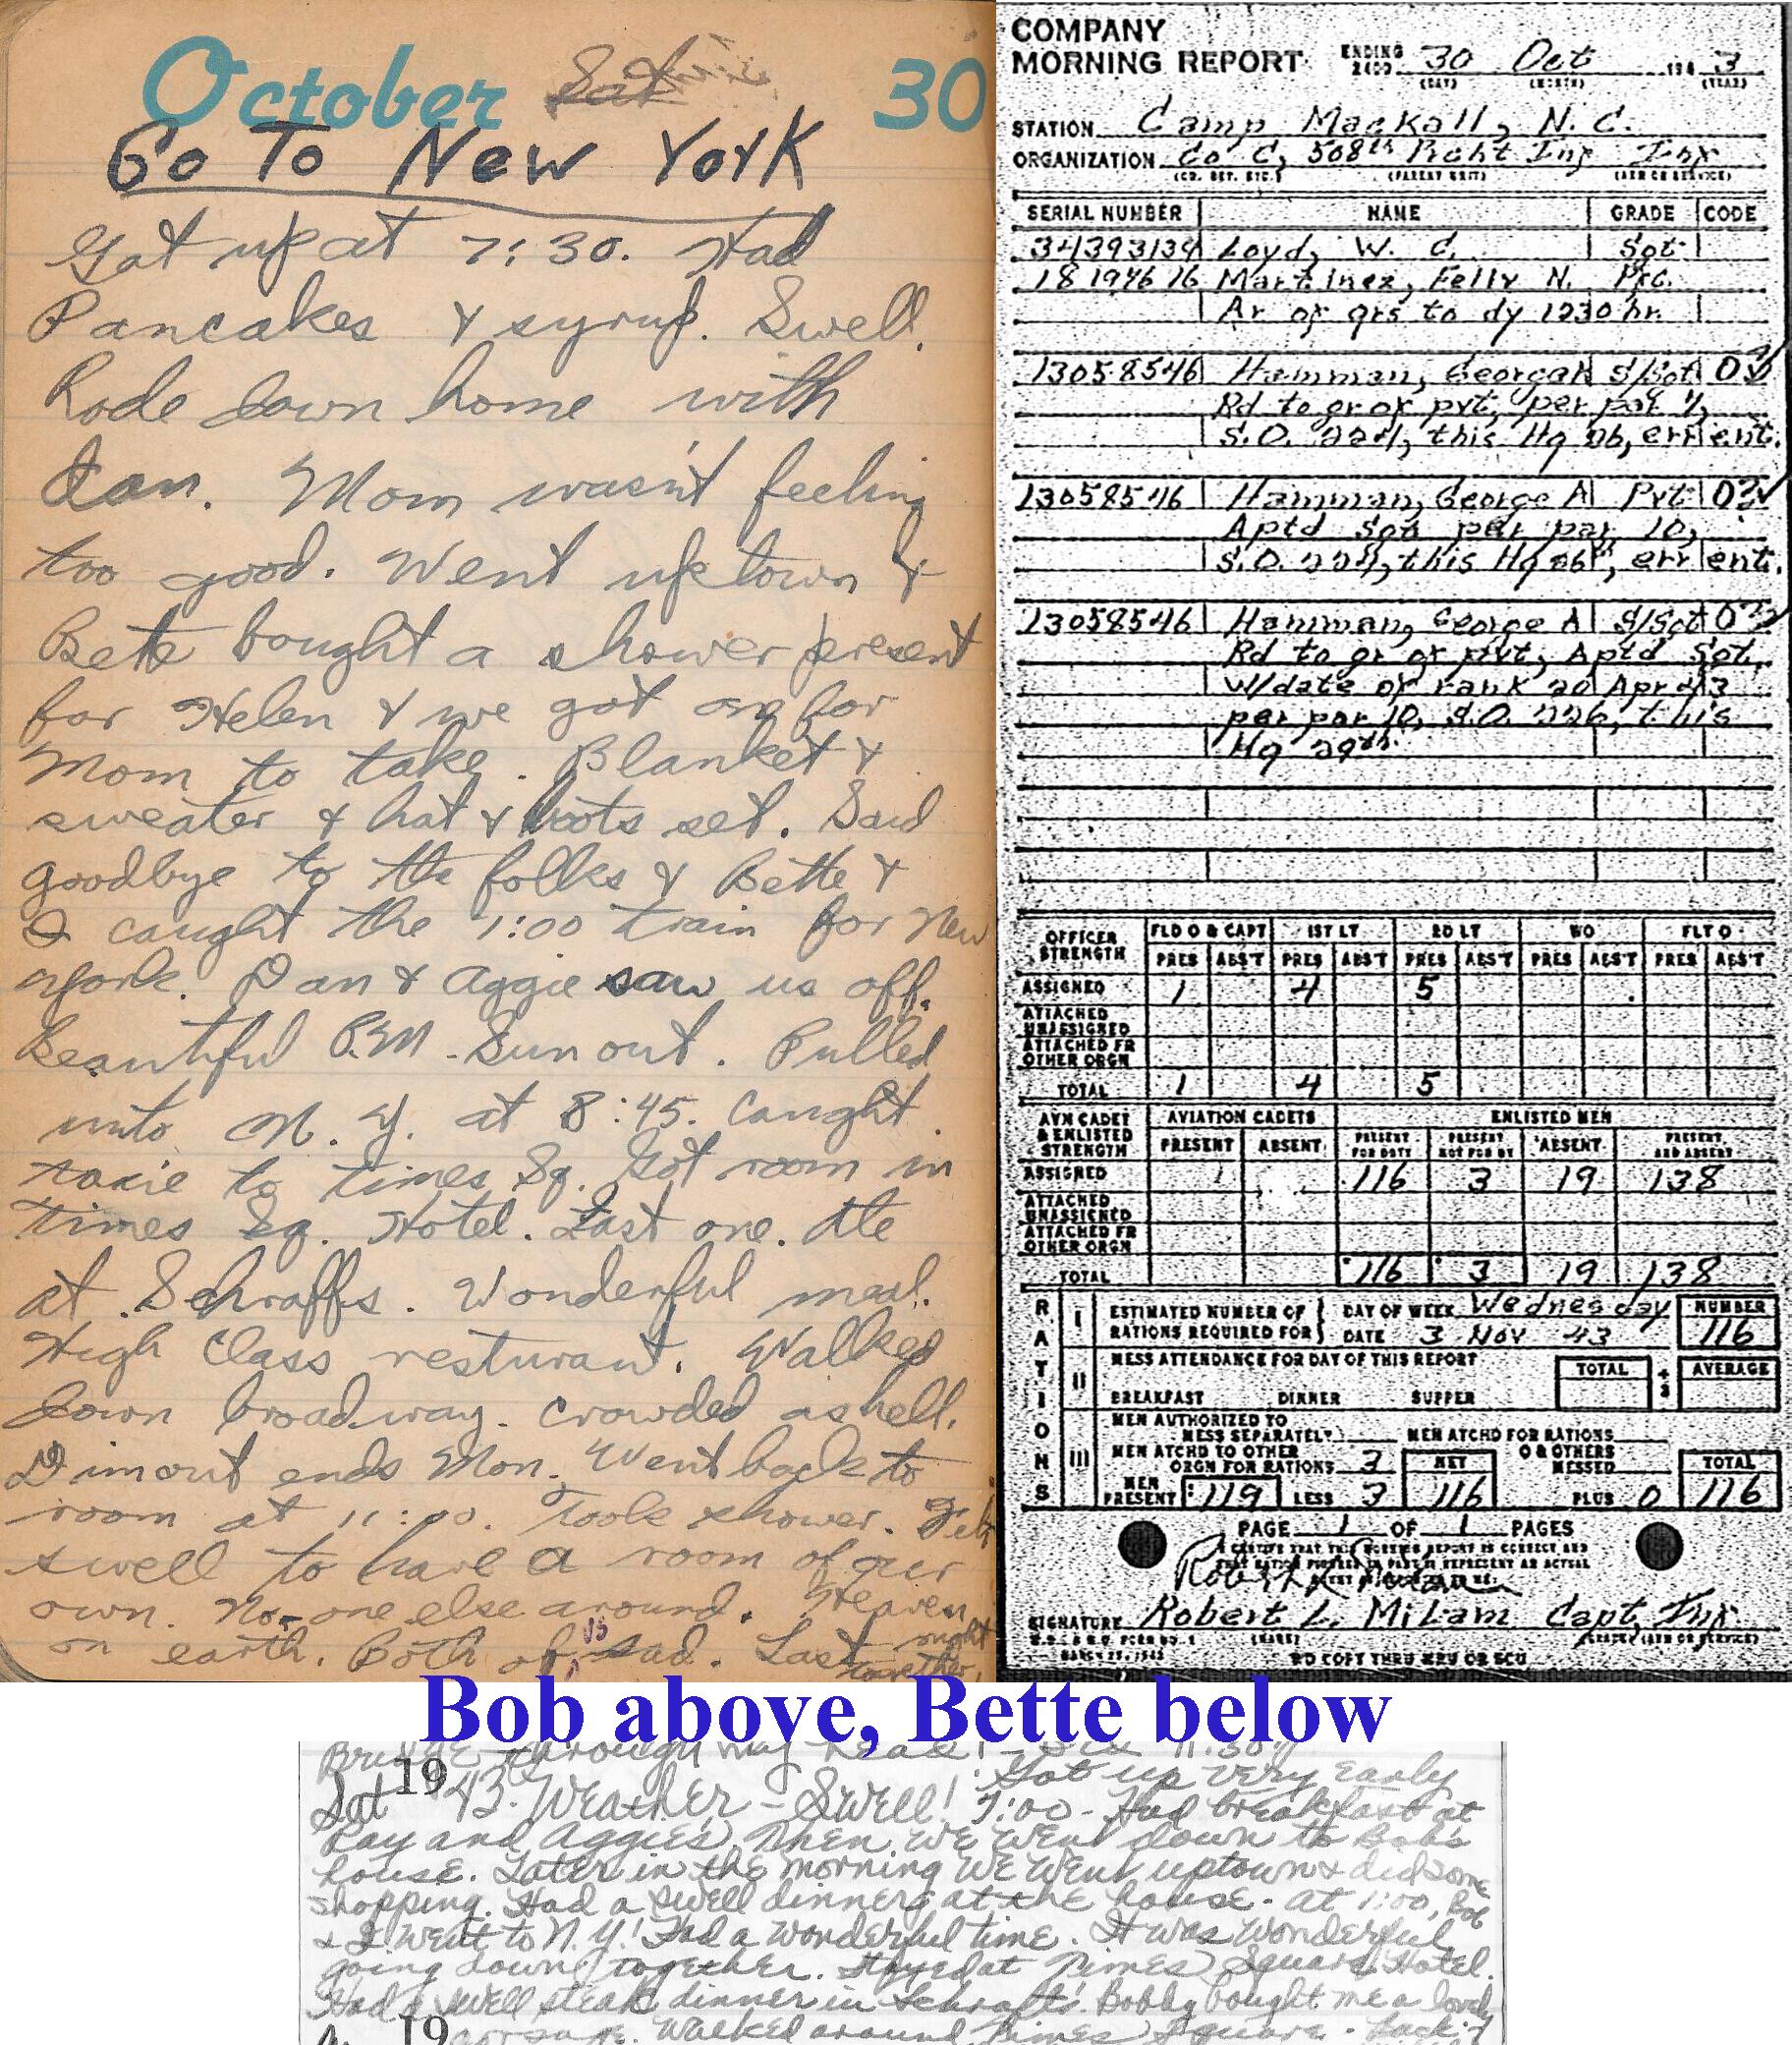 October Sat 30
Go To New York
Got up at 7:30. Had
Pancakes & syrup. Swell.
Rode down home with
Dan. Mom wasn't feeling
too good. Went uptown &
Bette bought a shower present
for Helen & we got one for
Mom to take. Blanket &
sweater & hat & boots set. Said
goodbye to the folks & Bette &
I caught the 1:00 train for New
York. Dan & Aggie saw us off.
Beautiful P.M. Sun out. Pulled
into N. Y. at 8:45. Caught
taxie to times Sq. Got room in
times Sq. Hotel. Last one. Ate
at Schraffs. Wonderful meal.
High Class resturant. Walked
down broadway. Crowded as hell.
Dimout ends Mon. Went back to
room at 11:00. Took shower. Felt
swell to have a room of our
own. No-one else around. Heaven
on earth. Both of us sad. Last night
together.
COMPANY
MORNING REPORT ENDING 2400 30 Oct 194 3
(DAY) (MONTH) (YEAR)
STATION Camp Mackall, N. C.
ORGANIZATION Co C, 508th Prcht Inf Inf
(CO. DET. ETC.) (PARENT UNIT) (ARM OR SERVICE)
SERIAL NUMBER NAME GRADE CODE
34393134 Loyd, W. C. Sgt
18194616 Martinez, Felix N. Pfc.
Ar of qrs to dy 1230 hr.
13058546 Hamman, George A S/Sgt
Rd to gr of pvt, per par 7,
S.O. 224, this Hq 26, err ent.
13058546 Hamman, George A Pvt
Aptd Sgt per par 10,
S.O. 224, this Hq 26, err ent.
13058546 Hamman, George A S/Sgt
Rd to gr of pvt, Aptd Sgt,
W/date of rank 20 Apr 43
per par 10, S.O. 226, this
Hq 29th.
OFFICER STRENGTH FLD O & CAPT 1ST LT 2D LT WO FLT O
PRES ABS'T PRES ABS'T PRES ABS'T PRES ABS'T PRES ABS'T
ASSIGNED 1 4 5
ATTACHED UNASSIGNED
ATTACHED FR OTHER ORGN
TOTAL 1 4 5
AVN CADET & ENLISTED STRENGTH AVIATION CADETS ENLISTED MEN
PRESENT ABSENT PRESENT FOR DUTY PRESENT NOT FOR DY ABSENT PRESENT AND ABSENT
ASSIGNED 116 3 19 138
ATTACHED UNASSIGNED
ATTACHED FR OTHER ORGN
TOTAL 116 3 19 138
RATIONS
I ESTIMATED NUMBER OF RATIONS REQUIRED FOR DAY OF WEEK Wednesday DATE 3 Nov 43 NUMBER 116
II MESS ATTENDANCE FOR DAY OF THIS REPORT TOTAL ÷ 3 AVERAGE
BREAKFAST DINNER SUPPER
III MEN AUTHORIZED TO MESS SEPARATELY MEN ATCHD FOR RATIONS
MEN ATCHD TO OTHER ORGN FOR RATIONS 3 NET O & OTHERS MESSED TOTAL
MEN PRESENT 119 LESS 3 116 PLUS 0 116
PAGE 1 OF 1 PAGES
SIGNATURE Robert L. Milam Capt, Inf
NO COPY THRU MRU OR SCU
Bob above, Bette below
through my head!
Sat 1943. Weather - Swell! Got up very early
7:00 - Had breakfast at
Ray and Aggies. Then we went down to Bob's
house. Later in the morning we went uptown & did some
shopping. Had a swell dinner at the house. At 1:00, Bob
& I went to N.Y.! Had a wonderful time. It was wonderful
going down together. Stayed at Times Square Hotel.
Had a swell steak dinner in Schrafts. Bobby bought me a lovely
19 corsage. Walked around Times Square.